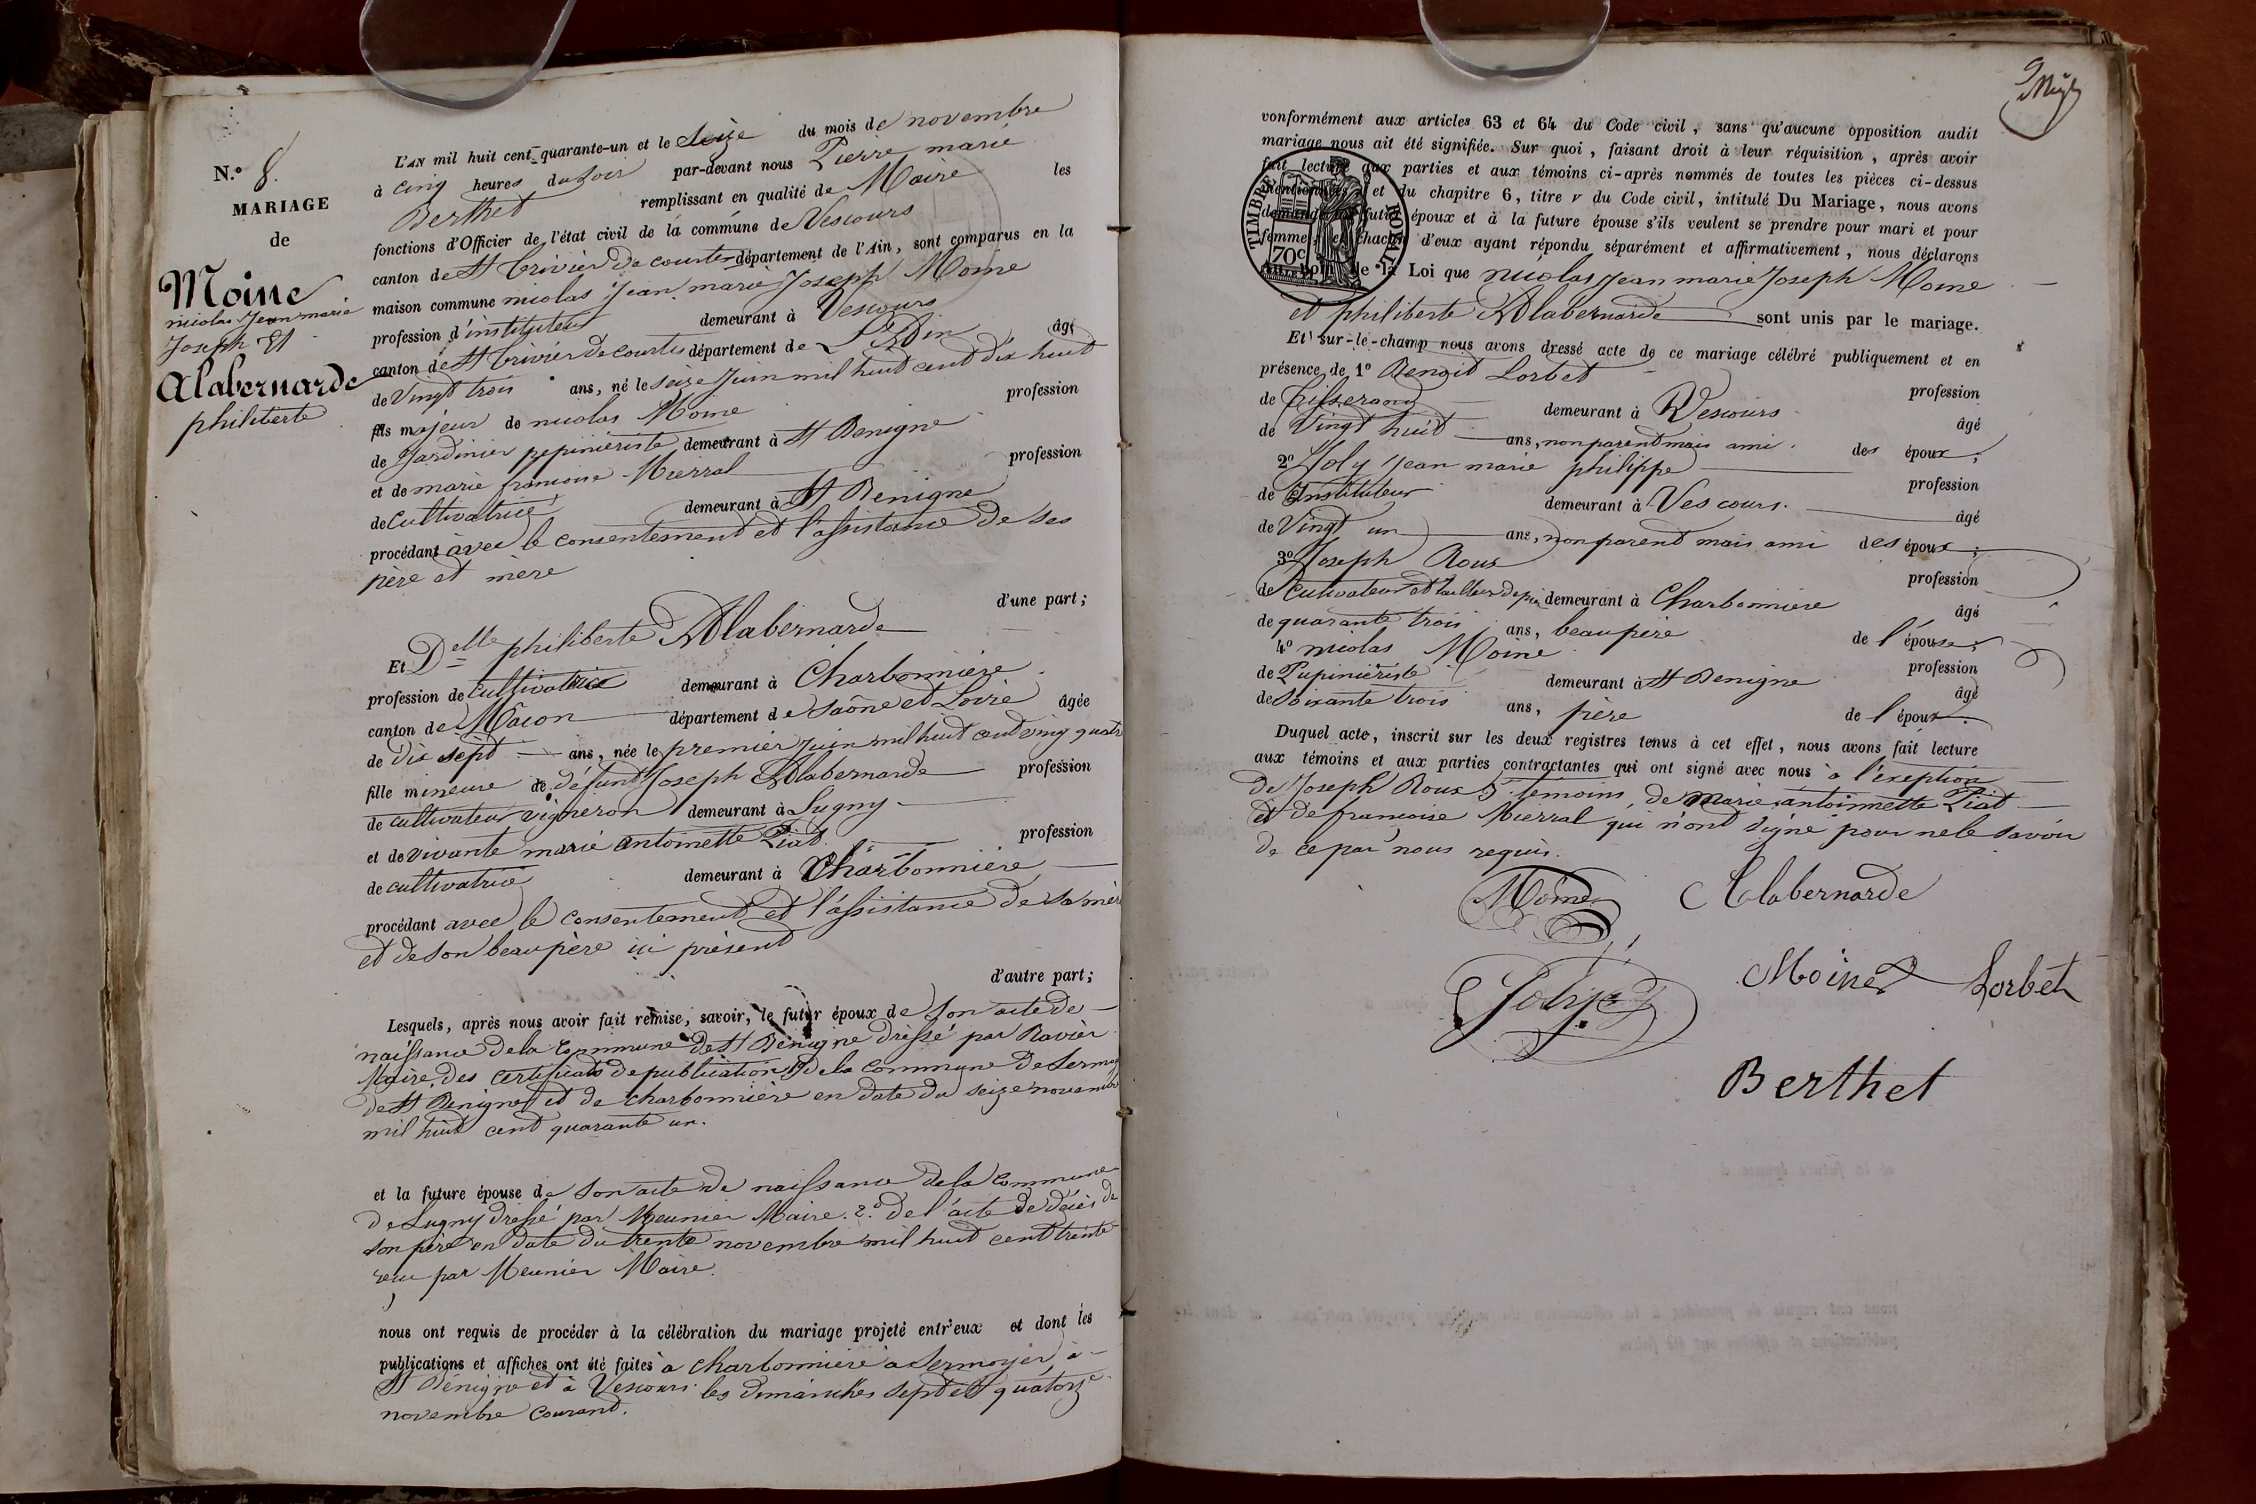 N.º 8.
MARIAGE
de
Moine
nicolas Jean marie
Joseph Et
Alabernarde
philiberte
L'AN mil huit cent quarante-un et le Seize du mois de novembre
à cinq heures du soir par-devant nous Pierre marie
Berthet remplissant en qualité de Maire les
fonctions d'Officier de l'état civil de la commune de Vescours
canton de St Trivier de courtes département de l'Ain, sont comparus en la
maison commune nicolas Jean marie Joseph Moine
profession d'instituteur demeurant à Vescours
canton de St Trivier de courtes département de L'Ain âgé
de Vingt trois ans, né le seize Juin mil huit cent dix huit
fils majeur de nicolas Moine profession
de Jardinier pepiniériste demeurant à St Benigne
et de marie francoise Murral profession
de cultivatrice demeurant à St Benigne
procédant avec le consentement et l'assistance de ses
père et mère
d'une part;
Et Delle philiberte Alabernarde
profession de cultivatrice demeurant à Charbonniere
canton de Mâcon département de Saône et Loire âgée
de Dix sept ans, née le premier Juin mil huit cent vingt quatre
fille mineure de défunt Joseph Alabernarde profession
de cultivateur vigneron demeurant à Lugny
et de vivante marie antoinette Piat profession
de cultivatrice demeurant à Charbonniere
procédant avec le consentement et l'assistance de sa mère
et de son beau père ici présent
d'autre part;
Lesquels, après nous avoir fait remise, savoir, le futur époux de son acte de
naissance de la Commune de St Bénigne dressé par Ravier
Maire, des certificats de publications de la commune de Sermoyer
de St Benigne et de charbonnière en date du seize novembre
mil huit cent quarante un.
et la future épouse de son acte de naissance de la Commune
de Lugny dressé par Meunier Maire. 2.º de l'acte de décès de
son père en date du trente novembre mil huit cent trente
recu par Meunier Maire.
nous ont requis de procéder à la célébration du mariage projeté entr'eux et dont les
publications et affiches ont été faites à charbonniere à Sermoyer, à
St Bénigne et à Vescours les dimanches sept et quatorze
novembre courant.
conformément aux articles 63 et 64 du Code civil, sans qu'aucune opposition audit
mariage nous ait été signifiée. Sur quoi, faisant droit à leur réquisition, après avoir
fait lecture aux parties et aux témoins ci-après nommés de toutes les pièces ci-dessus
mentionnées et du chapitre 6, titre v du Code civil, intitulé Du Mariage, nous avons
demandé au futur époux et à la future épouse s'ils veulent se prendre pour mari et pour
femme; et chacun d'eux ayant répondu séparément et affirmativement, nous déclarons
au nom de la Loi que nicolas Jean marie Joseph Moine
et philiberte Alabernarde sont unis par le mariage.
TIMBRE ROYAL
70c
Et sur-le-champ nous avons dressé acte de ce mariage célébré publiquement et en
présence de 1º Benoit Lorbet profession
de Tisserand demeurant à Vescours âgé
de Vingt huit ans, non parent mais ami des époux;
2º Joly Jean marie philippe profession
de Instituteur demeurant à Vescours. âgé
de Vingt un ans, non parent mais ami des époux;
3º Joseph Roux profession
de Cultivateur et tailleur de pie demeurant à Charbonniere âgé
de quarante trois ans, beau père de l'épouse;
4º nicolas Moine profession
de Pupiniériste demeurant à St Benigne âgé
de Soixante trois ans, père de l'époux.
Duquel acte, inscrit sur les deux registres tenus à cet effet, nous avons fait lecture
aux témoins et aux parties contractantes qui ont signé avec nous à l'exeption
de Joseph Roux 3e témoins, de Marie antoinnette Piat
et de francoise Murral qui n'ont signé pour ne le savoir
de ce par nous requis.
Moine Alabernarde
Moine Lorbet
Joly
Berthet